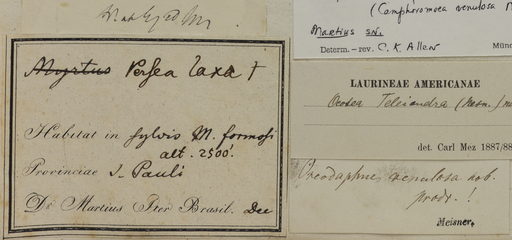 Myrtus Persea laxa †
Habitat in sylvis M. formosi
alt. 2500'.
Provinciae S. Pauli
Dr Martius Iter Brasil. Dec
(Camphoromoea venulosa
Martius s.n.
Determ. – rev. C. K. Allen
LAURINEAE AMERICANAE
Ocotea Teleiandra (Meisn.) Mez
det. Carl Mez 1887/88
Oreodaphne venulosa nob.
prodr. !
Meisner.